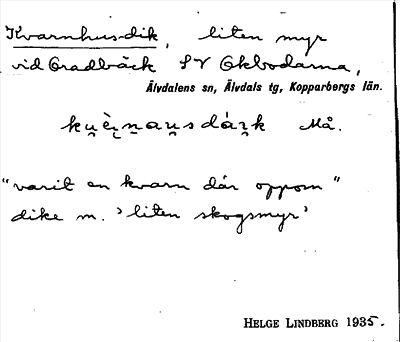 Kvarnhusdik, liten myr
vid Gradbäck SV Okbodarna,
Älvdalens sn, Älvdals tg, Kopparbergs län.
Må.
"varit en kvarn där oppom"
dike m. 'liten skogsmyr'
HELGE LINDBERG 1935.